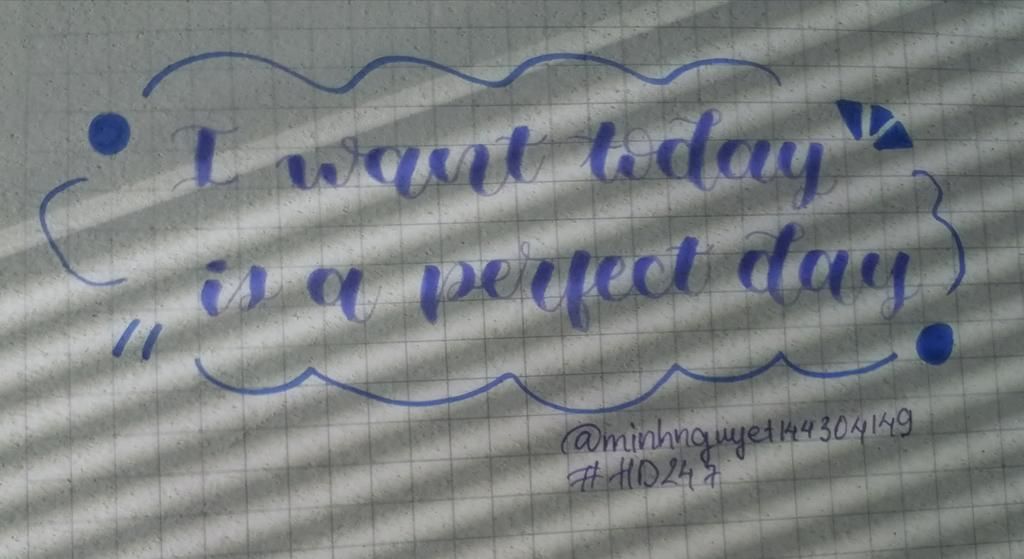 I want today
is a perfect day
@minhnguyet144304149
#HD247